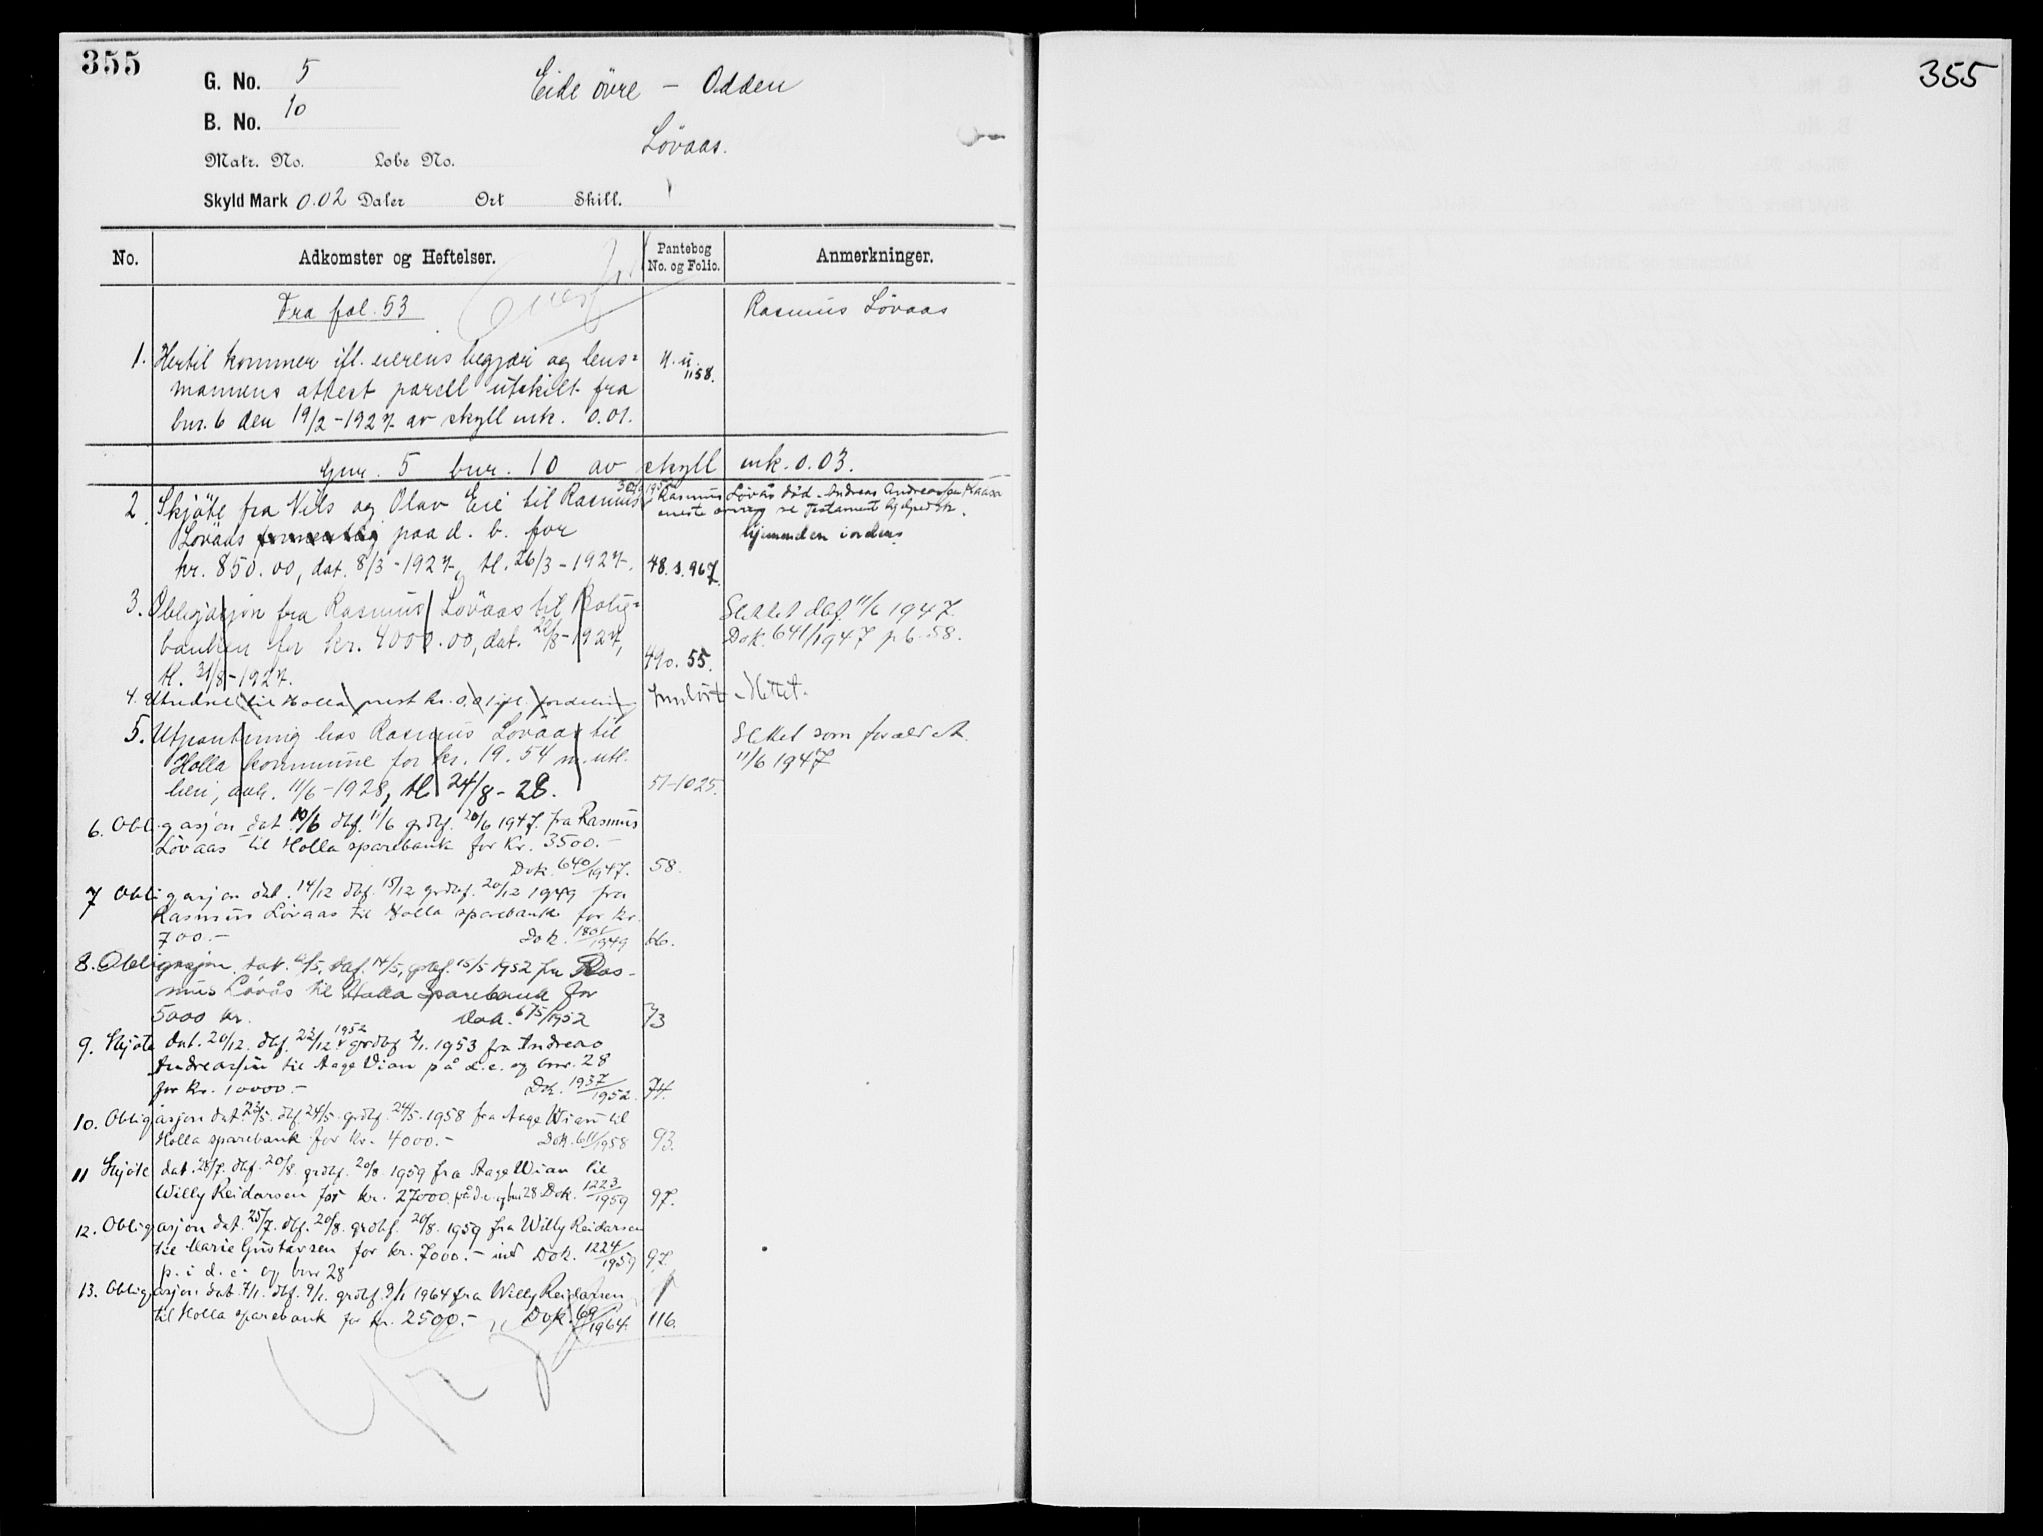 355
355
G. No. 5
Eide övre - Odden
B. No. 10
Lövaas.
Matr. No. Løbe No.
Skyld Mark 0.02 Daler Ort Skill.
No. Adkomster og Heftelser. Pantebog No. og Folio. Anmerkninger.
Fra fol. 53 Rasmus Lövaas
1. Hertil kommer ifl. eierens begjær og lens=
mannens attest parsell utskilt fra
bnr. 6 den 19/2-1927 av skyll mk. 0.01.
1158.
Gnr. 5 bnr. 10 av skyll mk. 0.03.
2. Skjöte fra Nils og Olav Eie til Rasmus
Lövaas paa d. b. for
kr. 850.00, dat. 8/3-1927, tl. 26/3-1927. 48.s.967.
Rasmus Lövås död - Andreas Andreassen
eneste arving se Testament
hjemmelen i orden.
3. Obligasjon fra Rasmus Lövaas til Bolig=
banken for kr. 4000.00, dat. 20/8-1927,
tl. 31/8-1927. 49o. 55.
Slettet dbf. 11/6 1947.
Dok. 641/1947 pb. 58.
4. til Holla prest kr. 0.01 ifl. Slettet.
5. Utpantning hos Rasmus Lövaas til
Holla kommune for kr. 19.54 m. utl.
lien, avh. 11/6-1928, tl. 24/8-28. 51-1025.
Slettet som foreldet
11/6 1947
6. Obligasjon dat. 10/6 dbf. 11/6 grdbf. 20/6 1947. fra Rasmus
Lövaas til Holla sparebank for kr. 3500.-
Dok. 640/1947. 58.
7 Obligasjon dat. 14/12 dbf. 15/12 grdbf. 20/12 1949 fra
Rasmus Lövaas til Holla sparebank for kr.
700.- Dok. 1801/1949 66.
8. Obligasjon, dat. 12/5, dbf. 14/5, grdbf. 15/5 1952 fra Ras-
mus Lövås til Holla Sparebank for
5000 kr. Dok. 675/1952 73
9. Skjöte dat. 20/12. dbf. 22/12. 1952 grdbf 2/1. 1953 fra Andreas
Andreassen til Aage Wian på d.e. og bnr. 28
for kr. 10000.- Dok. 1937/1952. 74.
10. Obligasjon dat. 23/5. dbf. 24/5. grdbf. 24/5. 1958 fra Aage Wian til
Holla sparebank for kr. 4000.- Dok. 611/1958 93.
11 Skjöte dat. 28/7. dbf. 20/8. grdbf. 20/8 1959 fra Aage Wian til
Willy Reidarsen for kr. 27000. på d.e. og bnr 28 Dok. 1223/1959 97.
12. Obligasjon dat. 25/7. dbf. 20/8. grdbf. 20/8. 1959 fra Willy Reidarsen
til Marie Gustavsen for kr. 7000.- ind Dok. 1224/1959 97.
p. i d. e. og bnr 28
13. Obligasjon dat. 7/1. dbf. 9/1. grdbf. 9/1 1964 fra Willy Reidarsen
til Holla sparebank for kr. 2500.- Dok. 69/1964. 116.